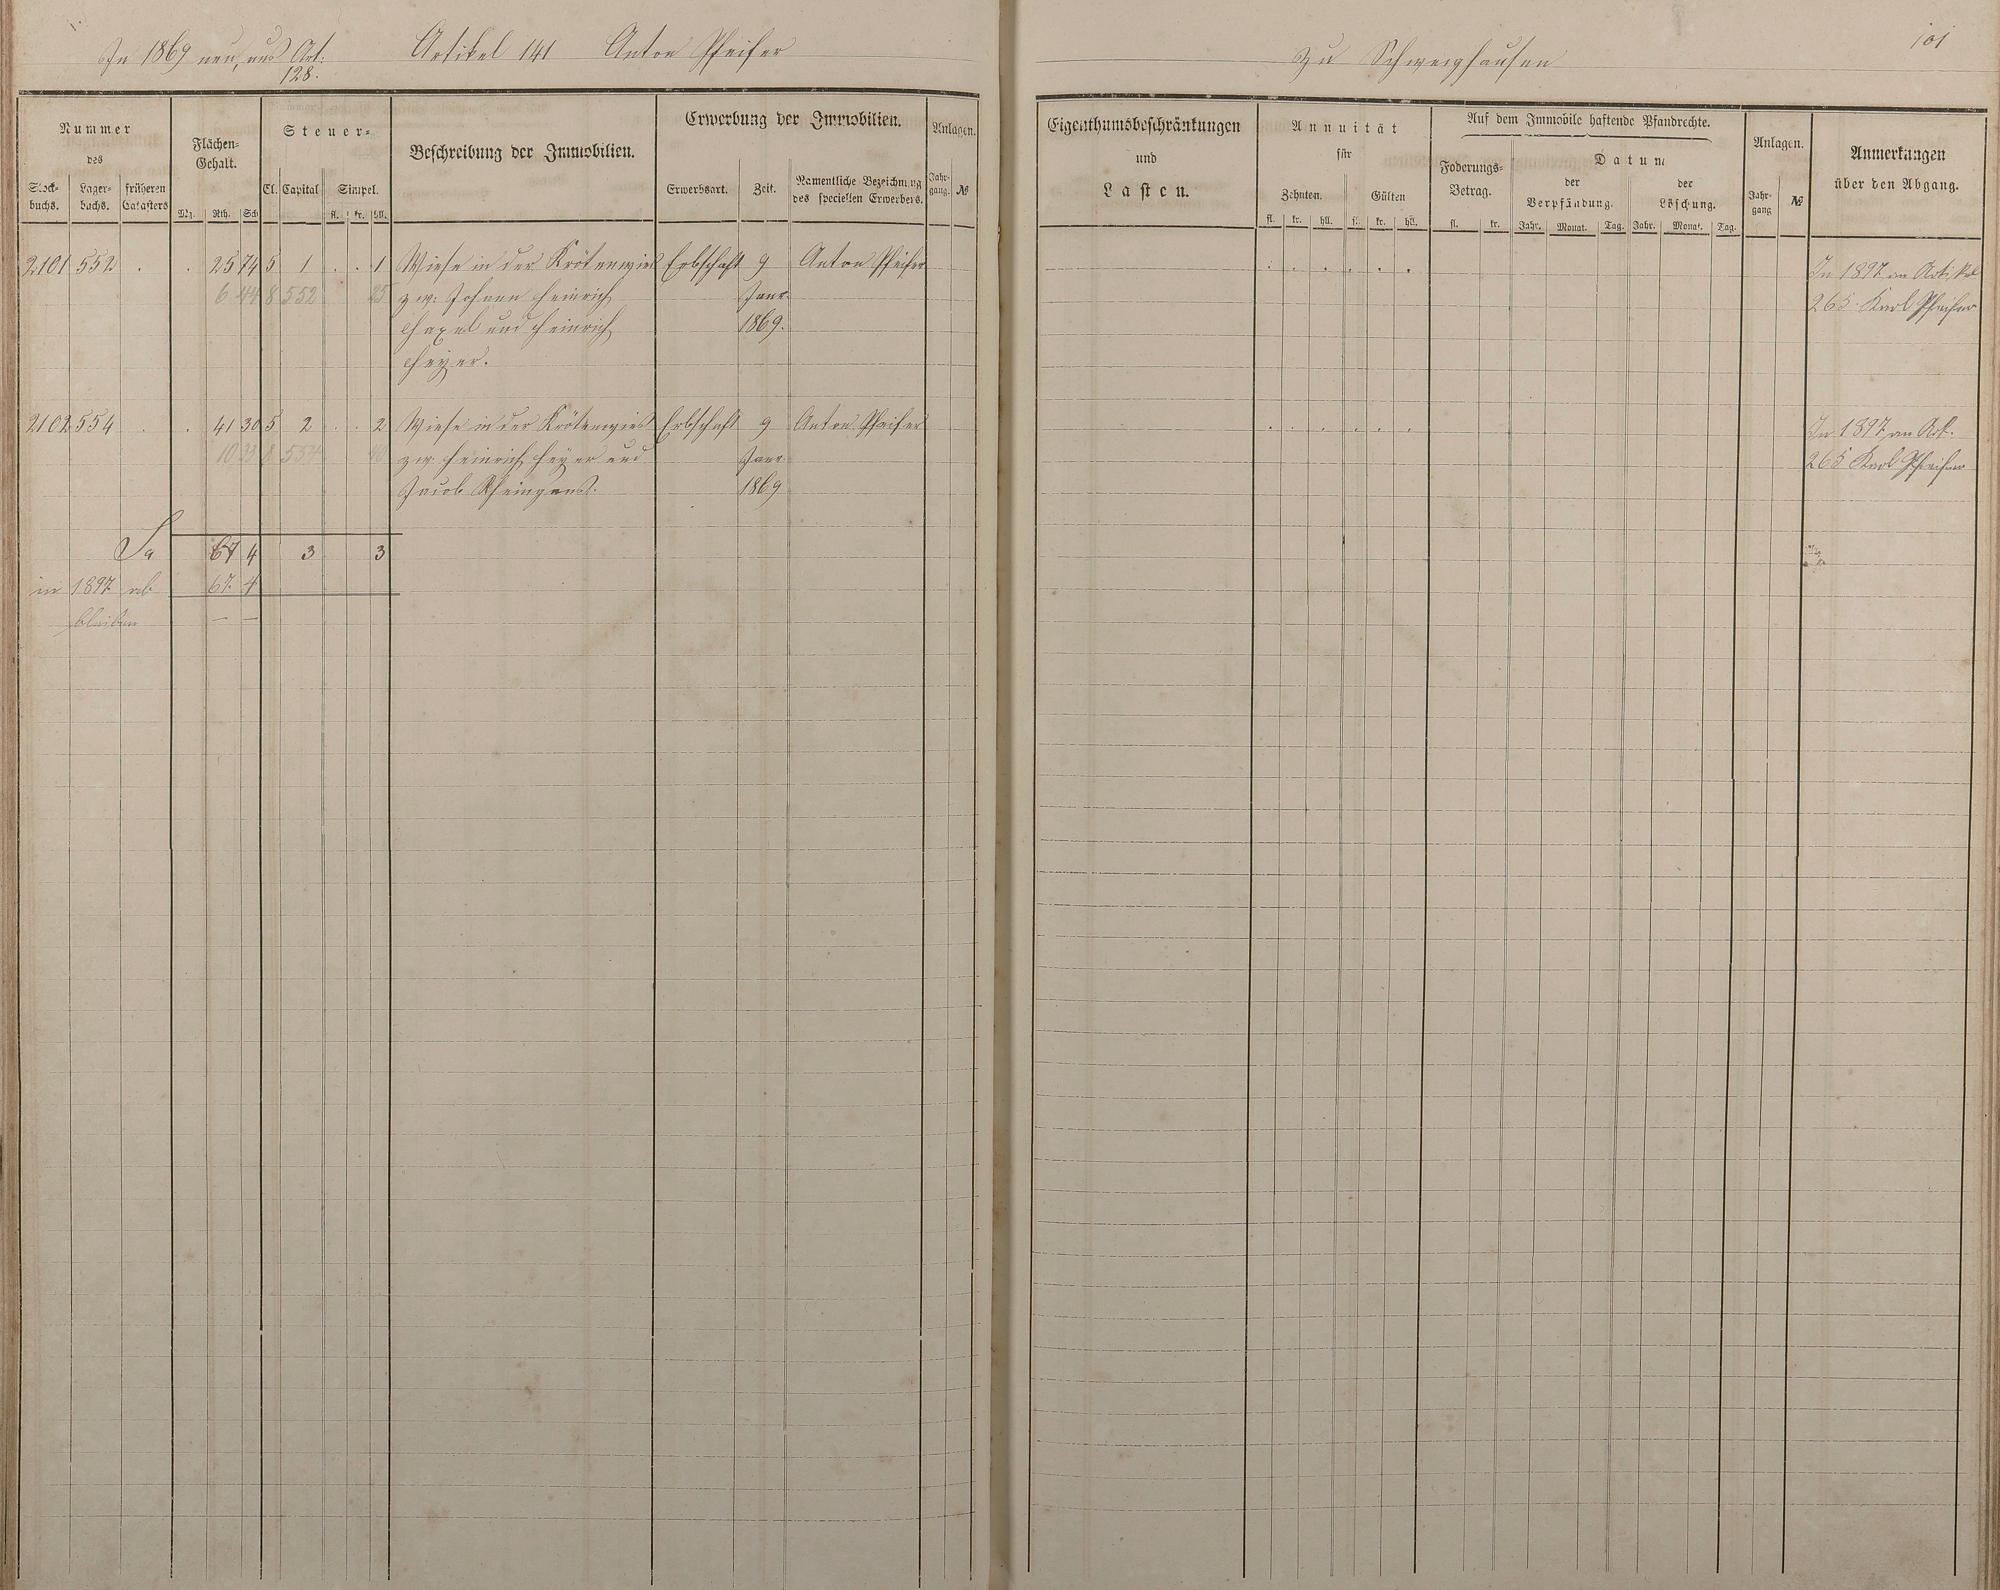 In 1869 neu, aus Art:
128.
Artikel 141 Anton Pfeifer
zu Schweighausen
101
Nummer
des
Stock-
buchs.
Lager-
buchs.
früheren
Catasters
Flächen-
Gehalt.
Mg. Rth. Sch
Steuer-
Cl. Capital Simpel.
fl. kr. hll.
Beschreibung der Immobilien.
Erwerbung der Immobilien.
Erwerbsart. Zeit.
Namentliche Bezeichnung
des speciellen Erwerbers.
Anlagen.
Jahr-
gang. №
Eigenthumsbeschränkungen
und
Lasten.
Annuität
für
Zehnten. Gülten
fl. kr. hll. fl. kr. hll.
Auf dem Immobile haftende Pfandrechte.
Foderungs-
Betrag.
fl. kr.
Datum
der
Verpfändung.
Jahr. Monat. Tag.
der
Löschung.
Jahr. Monat. Tag.
Anlagen.
Jahr-
gang №
Anmerkungen
über den Abgang.
2101 552 . . 25 74 5 1 . . 1 Wiese in der Krötenwies Erbschaft 9 Anton Pfeifer . . . . . . In 1897 an Artikel
6 44 8 552 25 zw: Johann Heinrich Janr. 265 Karl Pfeifer
Hazel und Heinrich 1869.
Heyer.
2102 554 . . 41 30 5 2 . . 2 Wiese in der Krötenwies Erbschaft 9 Anton Pfeifer . . . . . . In 1897 an Art.
10 33 8 554 40 zw. Heinrich Heyer und Janr. 265 Karl Pfeifer
Jacob 1869
Sa 67 4 3 3
in 1897 ab 67 4
bleiben — —